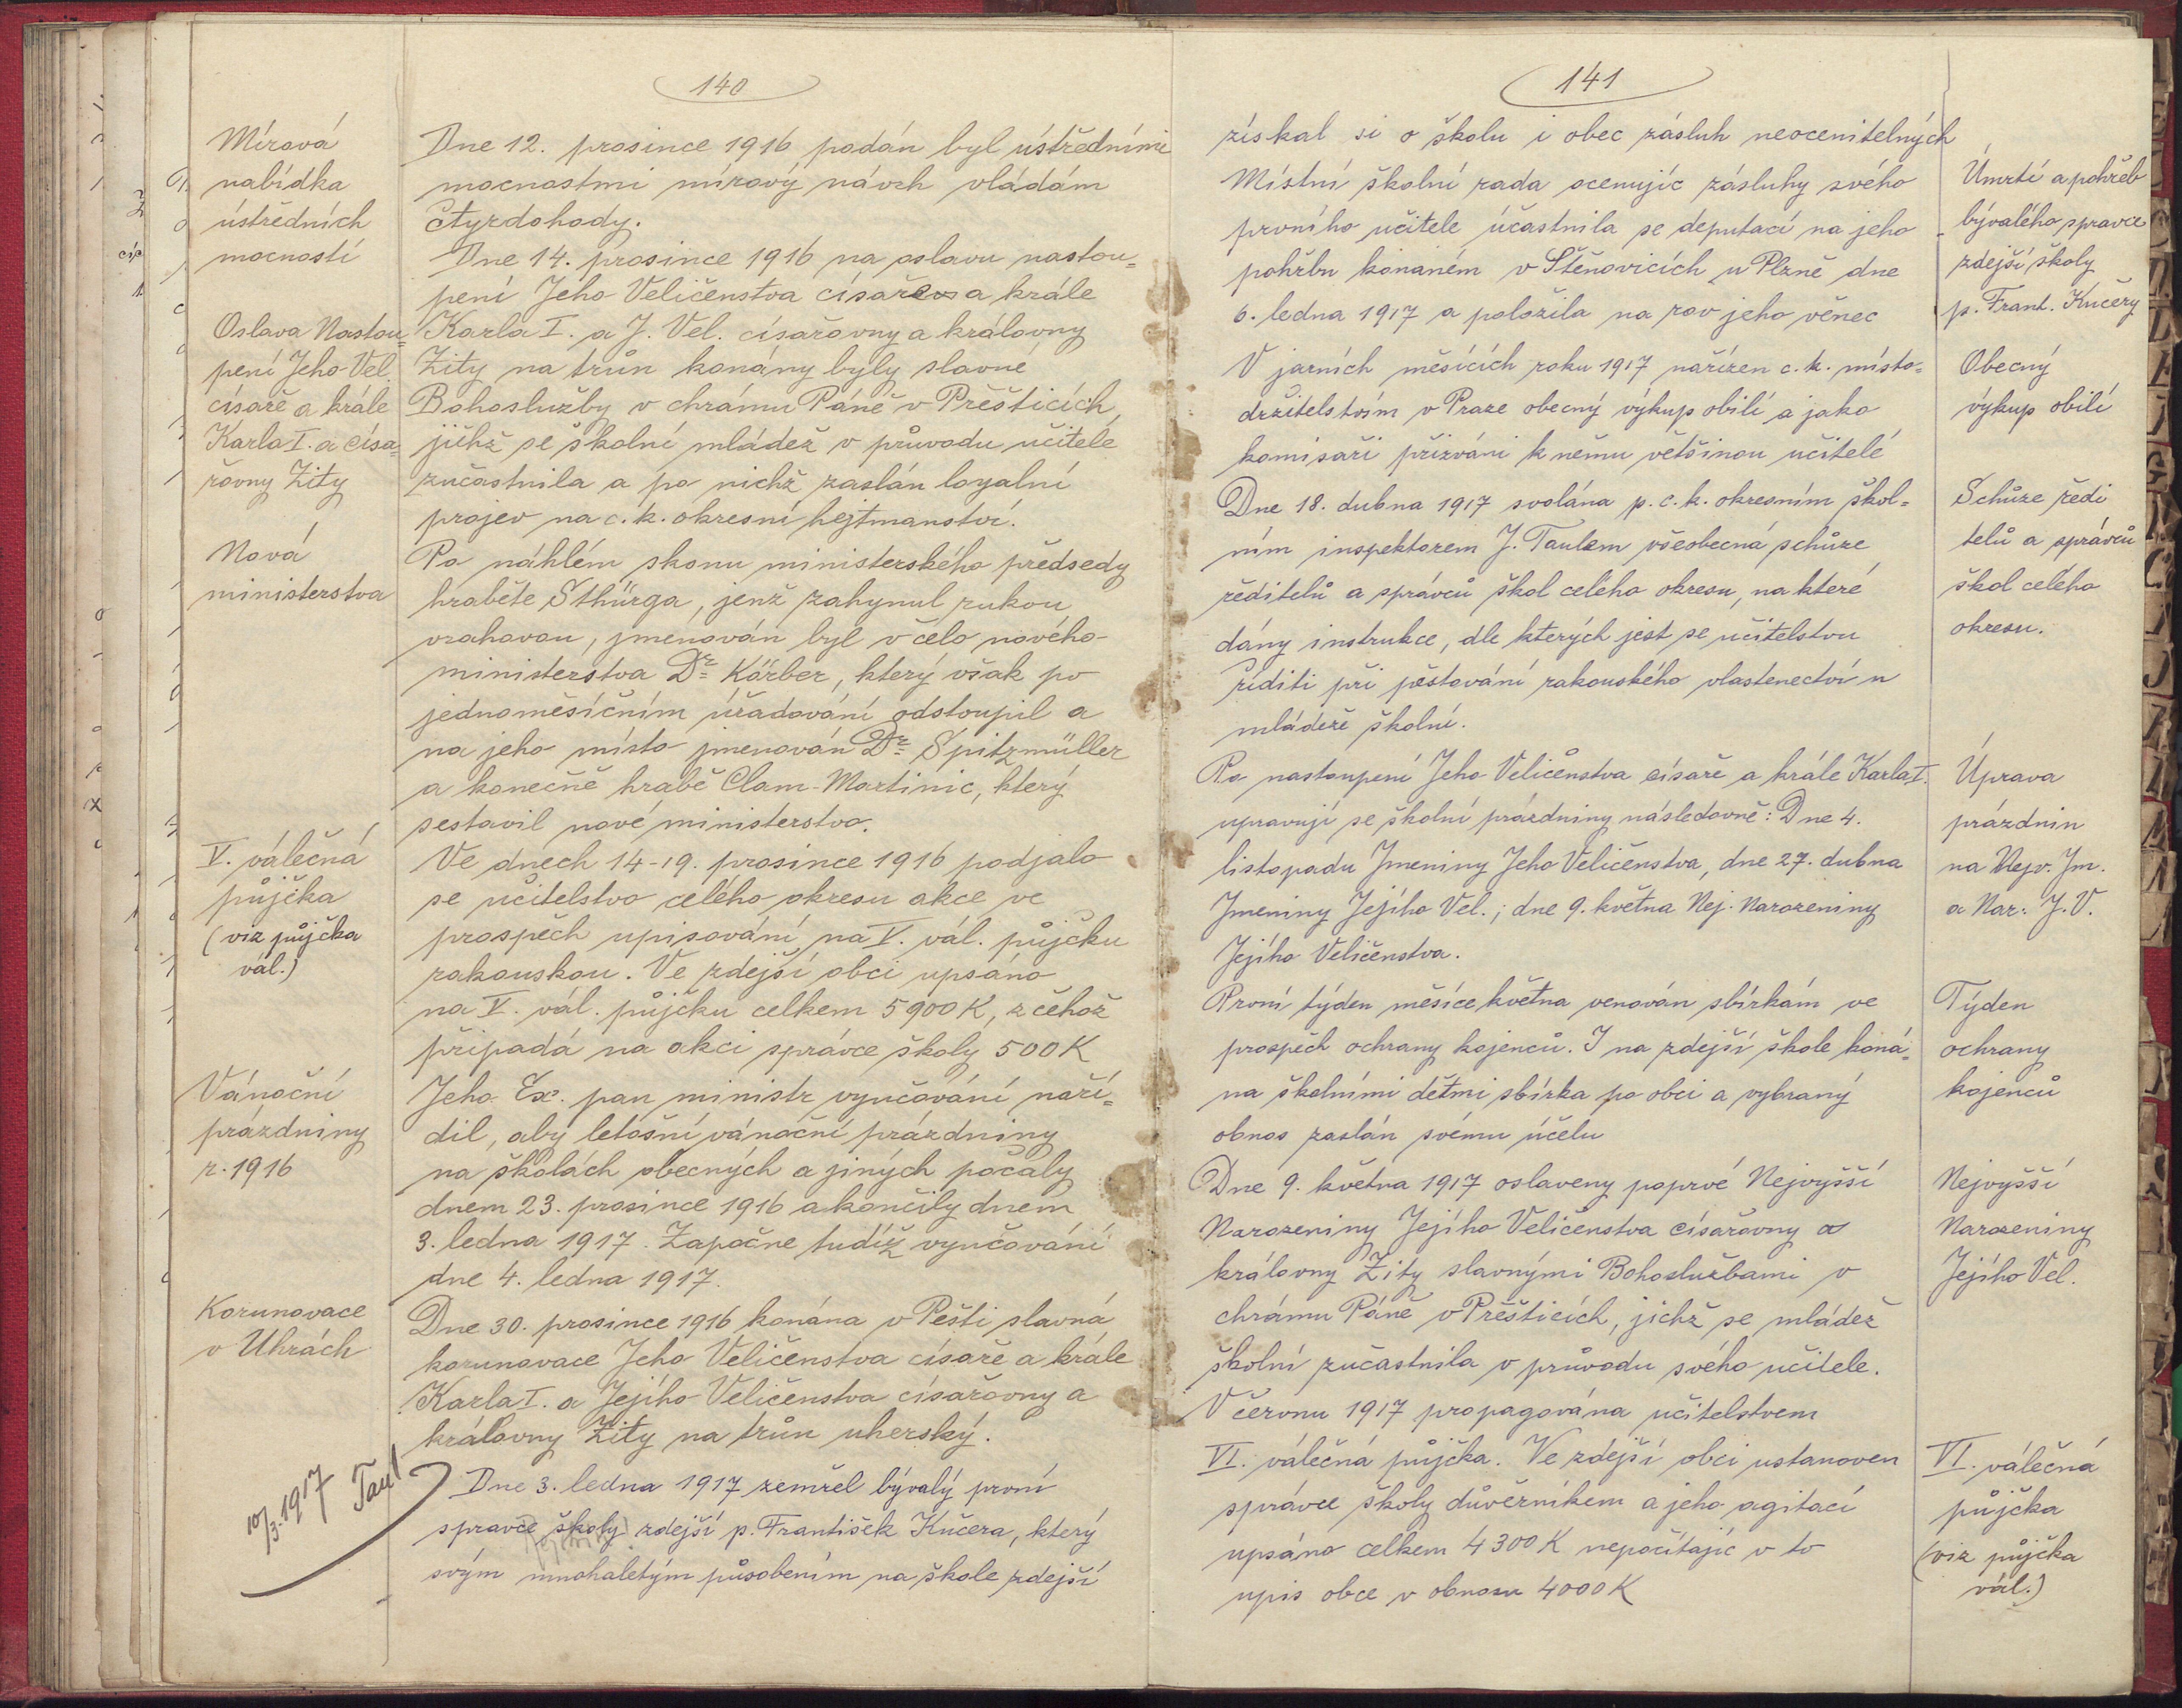 140
Mírová
nabídka
ústředních
mocností
Dne 12. prosince 1916 podán byl ústředními
mocnostmi mírový návrh vládám
čtyrdohody.
Oslava Nastou-
pení Jeho Vel.
císaře a krále
Karla I. a císa-
řovny Zity
Dne 14. prosince 1916 na oslavu nastou-
pení Jeho Veličenstva císaře a krále
Karla I. a J. Vel. císařovny a královny
Zity na trůn konány byly slavné
Bohoslužby v chrámu Páně v Přešticích,
jichž se školní mládež v průvodu učitele
zúčastnila a po nichž zaslán loyalní
projev na c. k. okresní hejtmanství.
Nová
ministerstva
Po náhlém skonu ministerského předsedy
hraběte Sthürga, jenž zahynul rukou
vrahovou, jmenován byl v čelo nového
ministerstva Dr. Körber, který však po
jednoměsíčním úřadování odstoupil a
na jeho místo jmenován Dr. Spitzmüller
a konečně hrabě Clam-Martinic, který
sestavil nové ministerstvo.
V. válečná
půjčka
(viz půjčka
vál.)
Ve dnech 14-19. prosince 1916 podjalo
se učitelstvo celého okresu akce ve
prospěch upisování na V. vál. půjčku
rakouskou. Ve zdejší obci upsáno
na V. vál. půjčku celkem 5900 K, z čehož
připadá na akci správce školy 500 K
Vánoční
prázdniny
r. 1916
Jeho Ex. pan ministr vyučování naří-
dil, aby letošní vánoční prázdniny
na školách obecných a jiných počaly
dnem 23. prosince 1916 a končily dnem
3. ledna 1917. Započne tudíž vyučování
dne 4. ledna 1917.
Korunovace
v Uhrách
Dne 30. prosince 1916 konána v Pešti slavná
korunovace Jeho Veličenstva císaře a krále
Karla I. a Jejího Veličenstva císařovny a
královny Zity na trůn uherský.
10/3. 1917 Taul
Dne 3. ledna 1917 zemřel bývalý první
spravce školy zdejší p. František Kučera, který
svým mnohaletým působením na škole zdejší
141
získal si o školu i obec zásluh neocenitelných
Místní školní rada ocenujíc zásluhy svého
prvního učitele účastnila se deputací na jeho
pohřbu konaném v Štěnovicích u Plzně dne
6. ledna 1917 a položila na rov jeho věnec
Úmrtí a pohřeb
bývalého spravce
zdejší školy
p. Frant. Kučery
V jarních měsících roku 1917 nařízen c. k. místo-
držitelstvím v Praze obecný výkup obilí a jako
komisaři přizváni k němu většinou učitelé
Obecný
výkup obilí
Dne 18. dubna 1917 svolána p. c. k. okresním škol-
ním inspektorem J. Taulem všeobecná schůze
ředitelů a správců škol celého okresu, na které
dány instrukce, dle kterých jest se učitelstvu
říditi při pěstování rakouského vlastenectví u
mládeže školní.
Schůze ředi
telů a správců
škol celého
okresu.
Po nastoupení Jeho Veličenstva císaře a krále Karla I.
upravují se školní prázdniny následovně: Dne 4.
listopadu Jmeniny Jeho Veličenstva, dne 27. dubna
Jmeniny Jejího Vel.; dne 9. května Nej. Narozeniny
Jejího Veličenstva.
Úprava
prázdnin
na Nejv. Jm.
a Nar. J. V.
První týden měsíce května venován sbírkám ve
prospěch ochrany kojenců. I na zdejší škole koná-
na školními dětmi sbírka po obci a vybraný
obnos zaslán svému účelu
Týden
ochrany
kojenců
Dne 9. května 1917 oslaveny poprvé Nejvyšší
Narozeniny Jejího Veličenstva císařovny a
královny Zity slavnými Bohoslužbami v
chrámu Páně v Přešticích, jichž se mládež
školní zučastnila v průvodu svého učitele.
Nejvyšší
Narozeniny
Jejího Vel.
V červnu 1917 propagována učitelstvem
VI. válečná půjčka. Ve zdejší obci ustanoven
správce školy důvěrníkem a jeho agitací
upsáno celkem 4300 K nepočítajíc v to
upis obce v obnosu 4000 K
VI. válečná
půjčka
(viz půjčka
vál.)